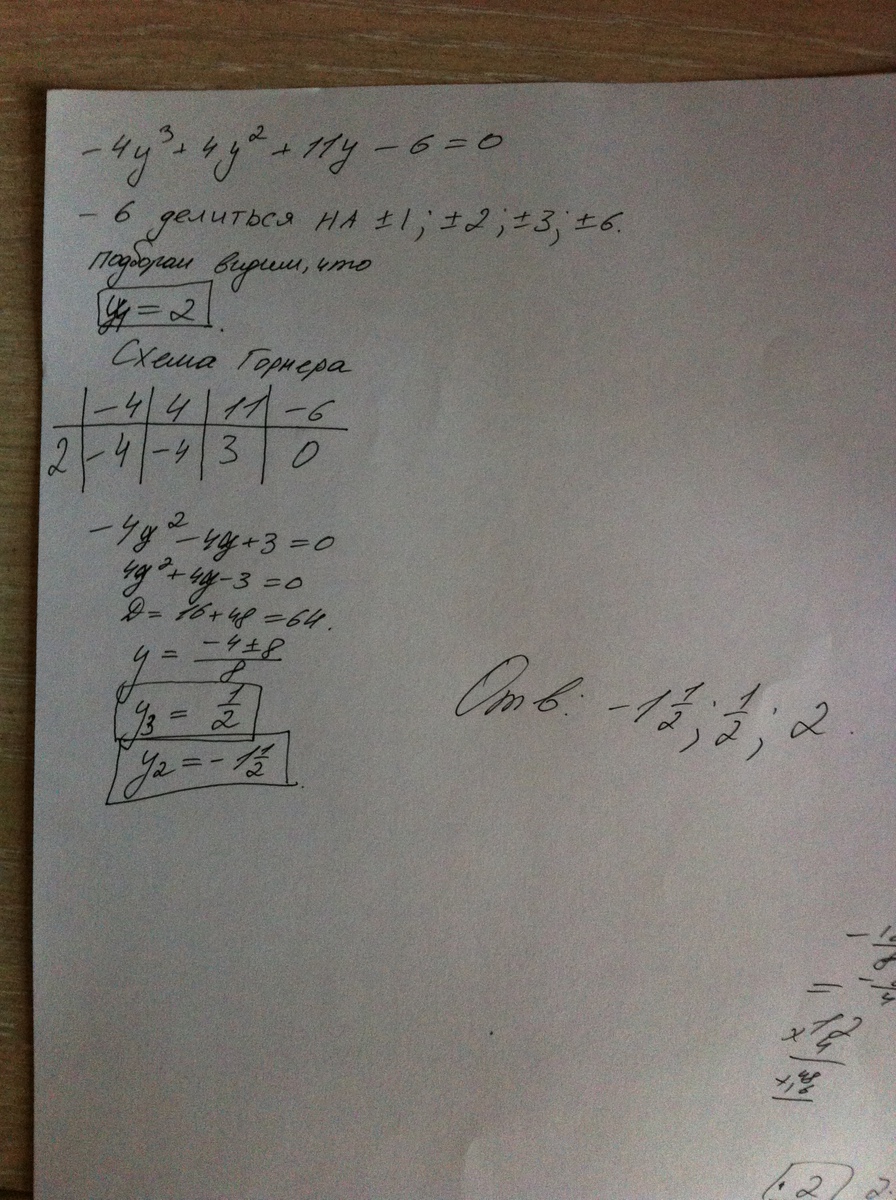 -4y³ + 4y² + 11y - 6 = 0
- 6 делиться на ±1; ±2; ±3; ±6.
видим, что
y₁ = 2.
Схема Горнера
-4 | 4 | 11 | -6
2 | -4 | -4 | 3 | 0
-4y² - 4y + 3 = 0
4y² + 4y - 3 = 0
D = 16 + 48 = 64.
y = (-4 ± 8)/8
y₃ = 1/2
y₂ = -1 1/2.
Отв: -1 1/2; 1/2; 2.
× 12
4
48
· 2